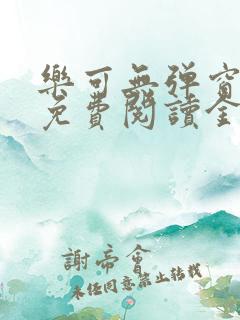 樂可無彈窗
免費閱讀全
謝帝會
未經同意禁止轉載